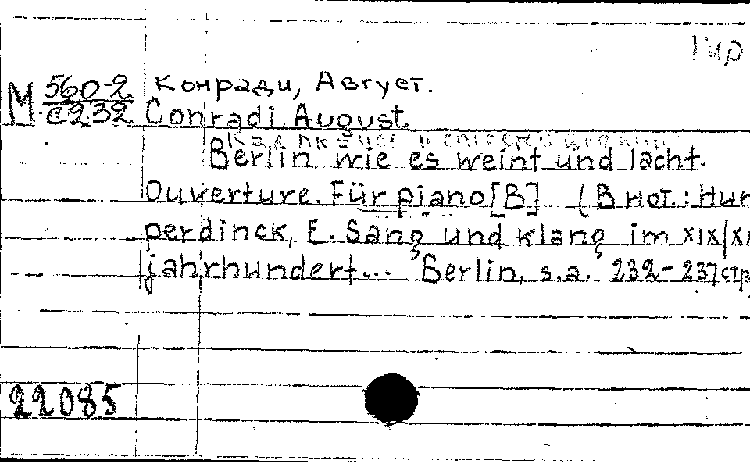 Пир
М 560-2 Конради, Август.
с232 Conradi August.
Berlin wie es weint und lacht.
Ouverture. Für piano [В] (В нот.: Hum
perdinck, E. Sang und klang im XIX/X
jahrhundert... Berlin, s.a. 232-237стр
22085